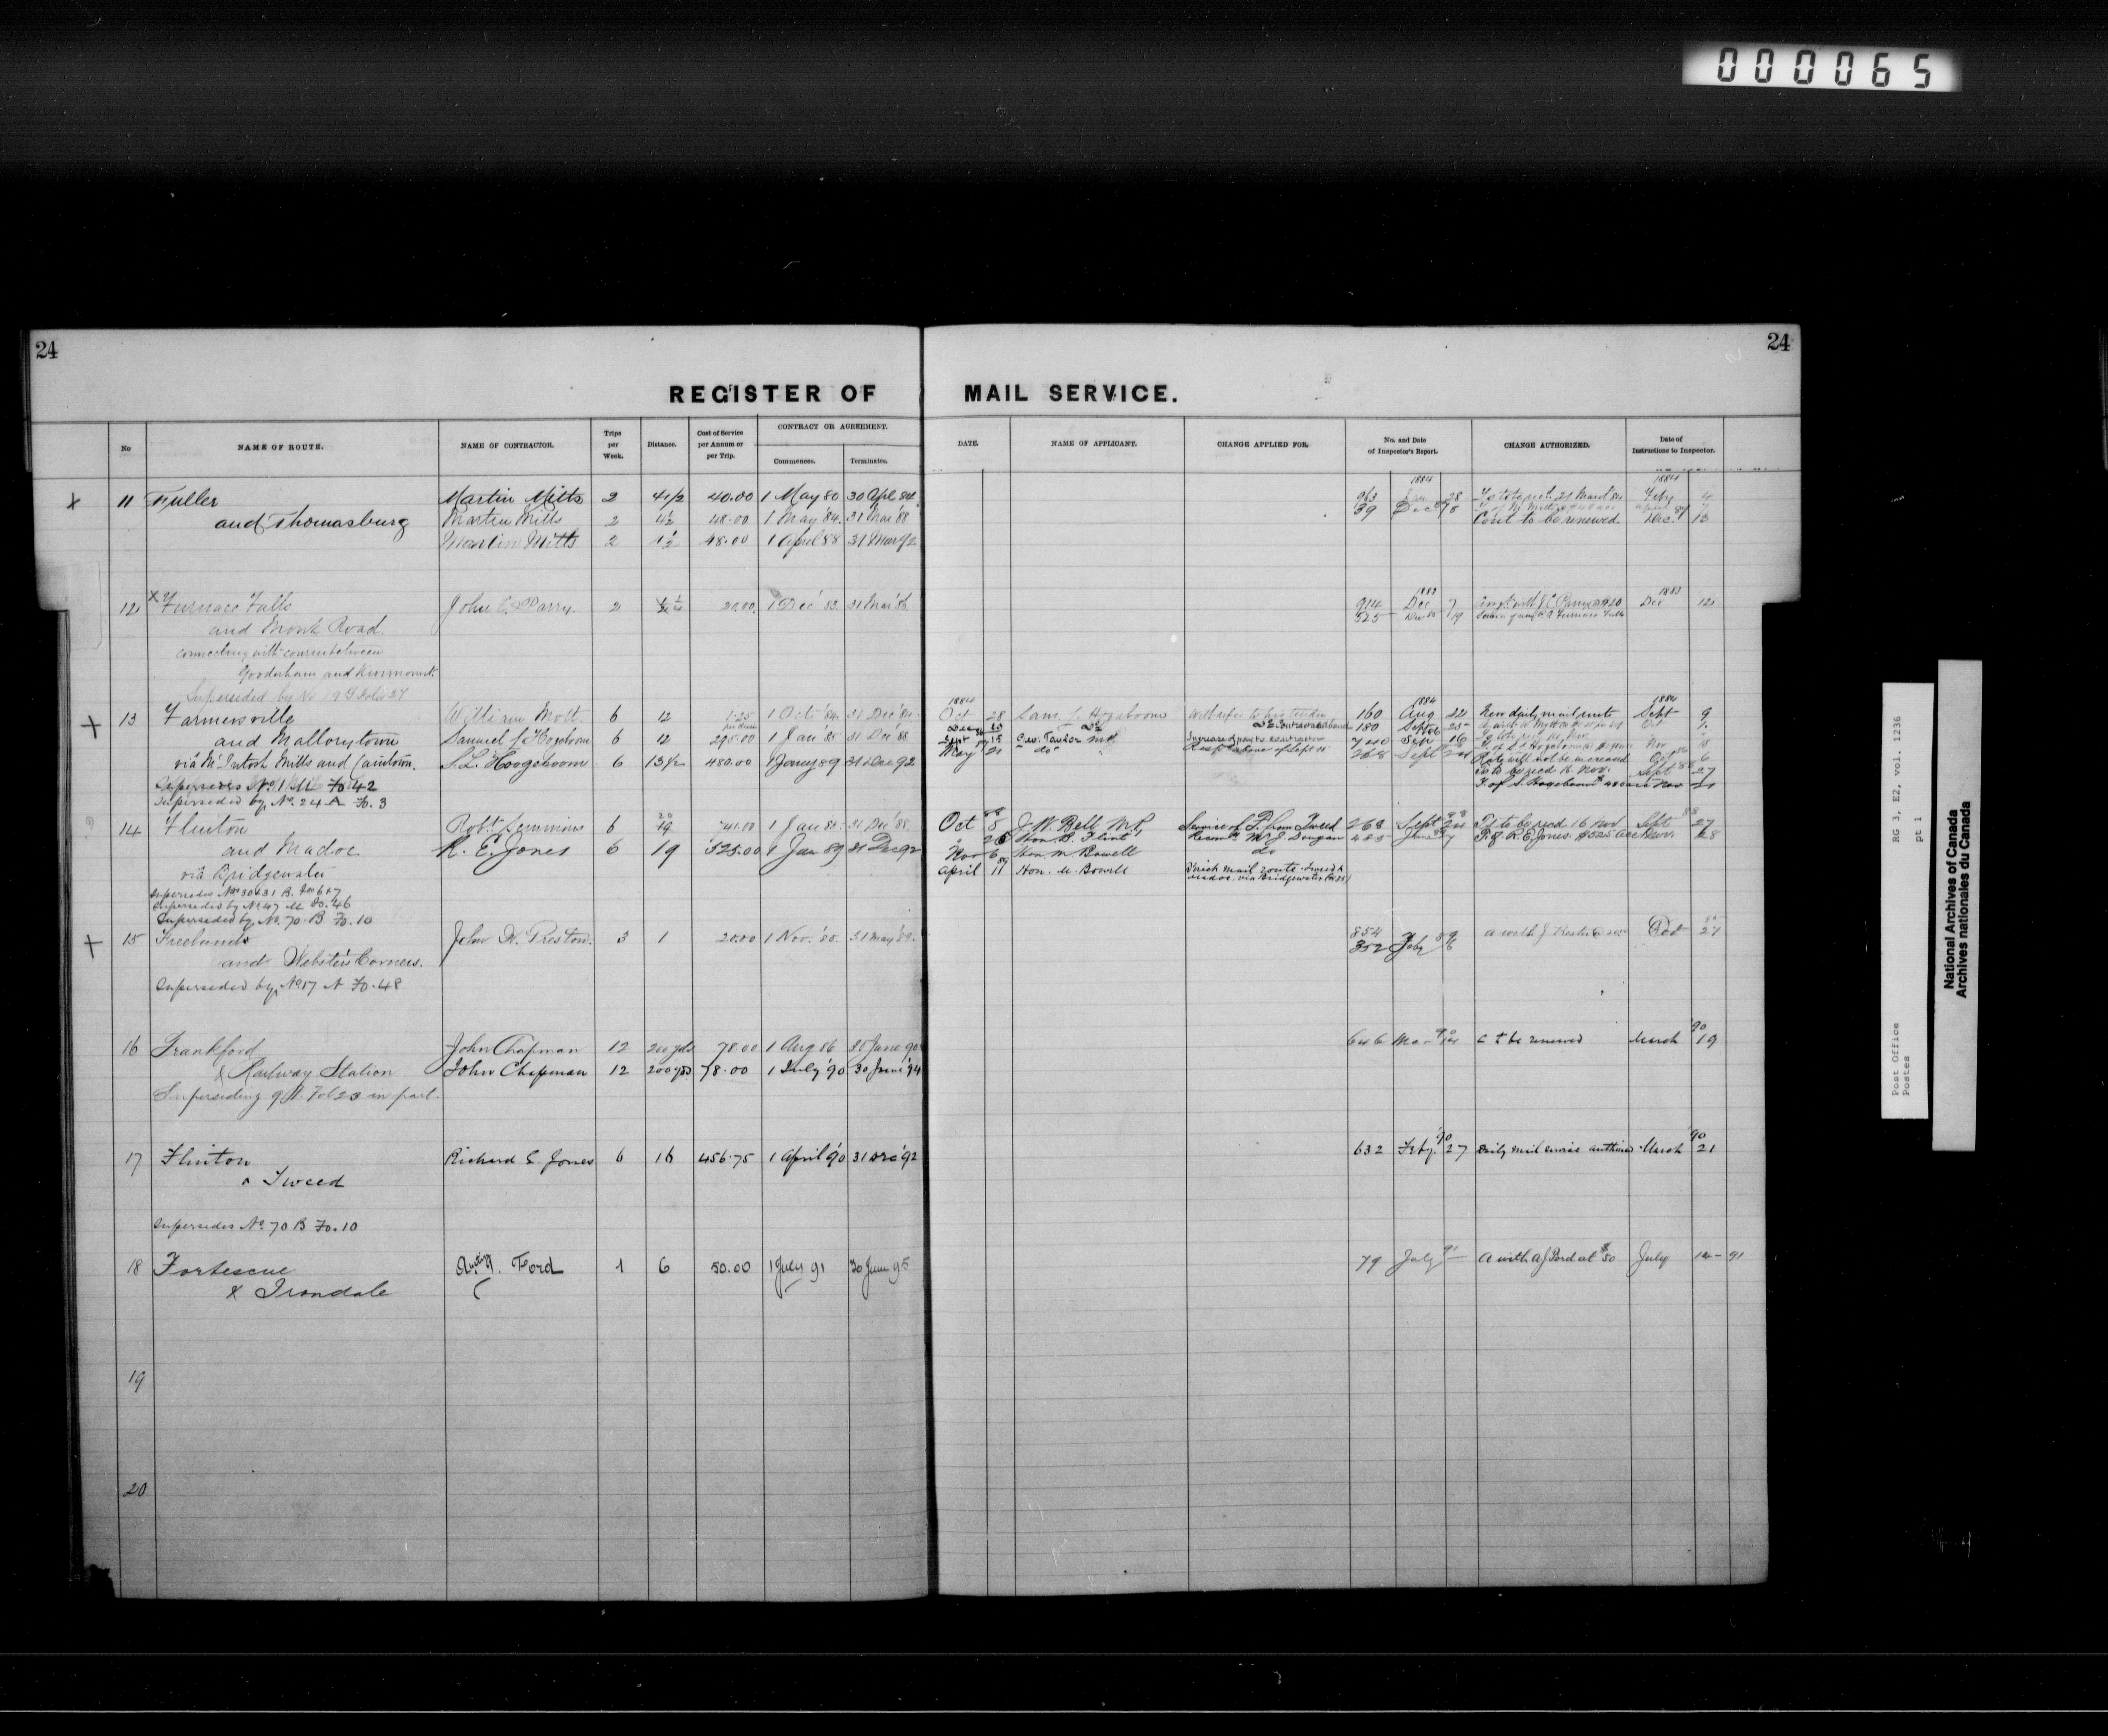 000065
24
24
REGISTER OF MAIL SERVICE.
No
NAME OF ROUTE.
NAME OF CONTRACTOR.
Trips per Week.
Distance.
Cost of Service per Annum or per Trip.
CONTRACT OR AGREEMENT.
Commences.
Terminates.
DATE.
NAME OF APPLICANT.
CHANGE APPLIED FOR.
No. and Date of Inspector's Report.
CHANGE AUTHORIZED.
Date of Instructions to Inspector.
x 11 Fuller Martin Mitts 2 4 1/2 40.00 1 May 80 30 Apl 84
and Thomasburg Martin Mitts 2 4 1/2 48.00 1 May '84 31 Mar '88
Martin Mitts 2 4 1/2 48.00 1 April 88 31 Mar 92
1884 1884
963 28 Feby 4
39 Dec 8 Cont to be renewed Dec. 13
12 x Furnace Falls John C. Parry. 2 20.00 1 Dec '83 31 Mar '86
and Monk Road.
connecting with courier between
Gooderham and Kinmount.
Superseded by No 19 Folio 27
1883 1883
914 Dec 7 Dec 12
525 Dec 19 Furnace Falls
+ 13 Farmersville William Mott. 6 12 1.25 1 Oct '84 31 Dec '84
and Mallorytown Samuel J. Hogeboom 6 12 295.00 1 Jan '85 31 Dec '88
via McIntosh Mills and Caintown. S.L. Hoogeboom 6 13 1/2 480.00 1 Jany 89 31 Dec 92
Fo 42
Superseded by No. 24 A Fo. 3
1884 1884 1884
Oct 28 Sam. J. Hogaboom with refer to his tender 160 Aug 22 New daily mail route Sept 9
Dec Do 180 Sept 25
Sept 15 C.W. Taylor M.P. Increase of pay to contractor 16
May 21 do 268 Sept Rate will not be increased Oct 6
Ts to be recd 16 Nov. Sept 27
T. of S. Hogeboom Nov
14 Flinton Robt. Lemmion 6 19 741.00 1 Jan 85 31 Dec '88
and Madoc R. E. Jones 6 19 525.00 1 Jan 89 31 Dec 92
via Bridgewater
Supersedes Nos 30 & 31 B. Fos 6 & 7
Superseded by No 47 M Fo. 46
Superseded by No. 70 B Fo. 10
Oct 8 J. W. Bell M.P. Service of F. from Tweed 268 Sept 24 Ts to be recd 16 Nov Sept 27
26 Hon. B. Flint 488 T. of R. E. Jones $525 acc Nov. 28
Nov 6 Hon. M. Bowell do
April 11 Hon. M. Bowell mail route Tweed & Madoc via Bridgewater
+ 15 Freelands John W. Preston. 3 1 20.00 1 Nov. '85 31 May '89
and Webster's Corners.
Superseded by No 17 A Fo. 48
854 Oct 27
352 Feby 6
16 Frankford John Chapman 12 200 yds 78.00 1 Aug 86 30 June 90
& Railway Station John Chapman 12 200 yds 78.00 1 July '90 30 June '94
Superseding 9 A. Fol 23 in part.
90 90
646 Mar 14 C to be renewed March 19
17 Flinton Richard E. Jones 6 16 456.75 1 April '90 31 Dec '92
& Tweed
Supersedes No 70 B Fo. 10
90 90
632 Feby. 27 Daily mail service authorized March 21
18 Fortescue Ford 1 6 50.00 1 July 91 30 June 95
& Irondale
79 July 91 A with A J Ford at $50 July 14 - 91
19
20
Post Office
Postes
RG 3, E2, vol. 1236
pt 1
National Archives of Canada
Archives nationales du Canada